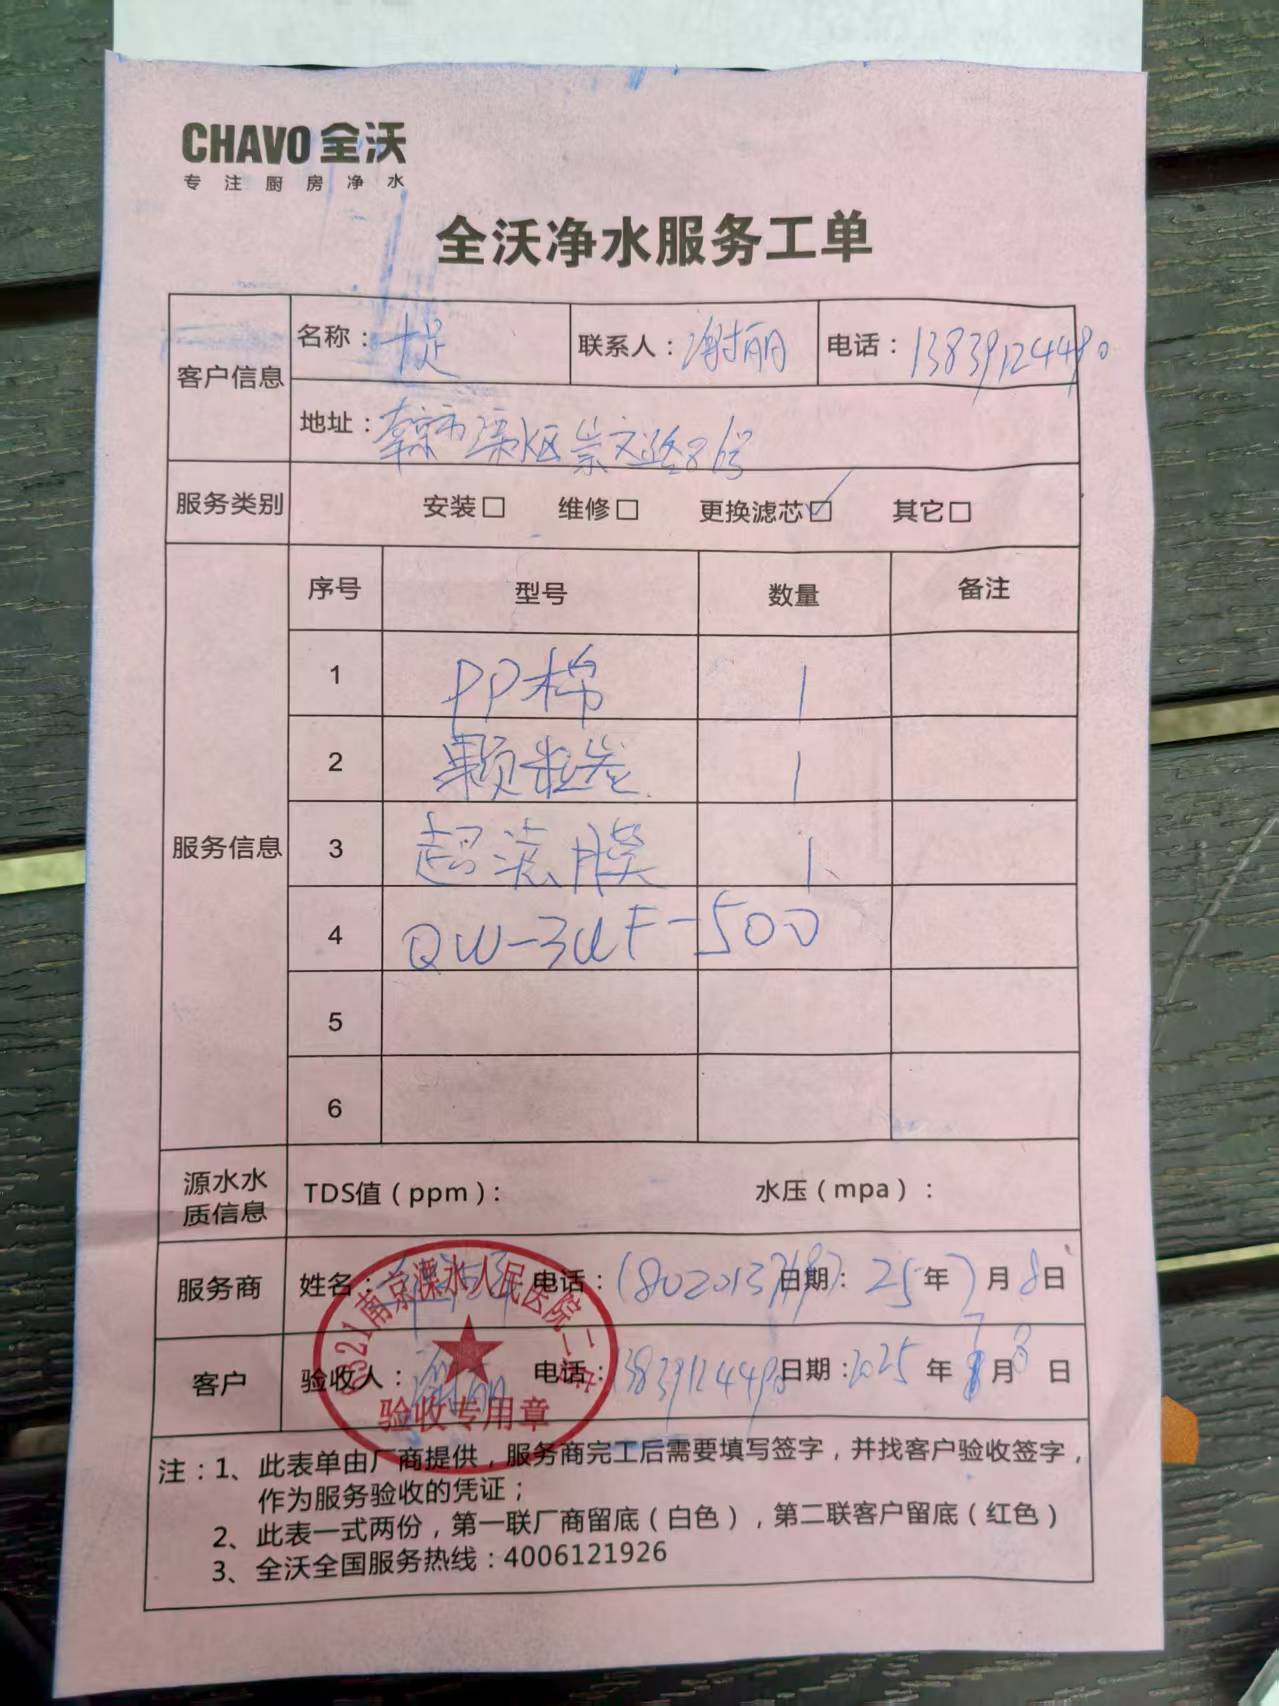 CHAVO 全沃
专注厨房净水
全沃净水服务工单
客户信息
名称：十足 联系人：谢丽 电话：13839124490
地址：南京市溧水区崇文路86号
服务类别 安装□ 维修□ 更换滤芯☑ 其它□
服务信息
序号 型号 数量 备注
1 PP棉 1
2 颗粒炭 1
3 超滤膜 1
4 QW-3UF-500
5
6
源水水质信息 TDS值（ppm）： 水压（mpa）：
服务商 姓名： 电话： 日期：25年7月8日
客户 验收人：谢丽 电话：13839124490 日期：2025年7月8日
南京溧水人民医院
验收专用章
注：1、此表单由厂商提供，服务商完工后需要填写签字，并找客户验收签字，
作为服务验收的凭证；
2、此表一式两份，第一联厂商留底（白色），第二联客户留底（红色）
3、全沃全国服务热线：4006121926